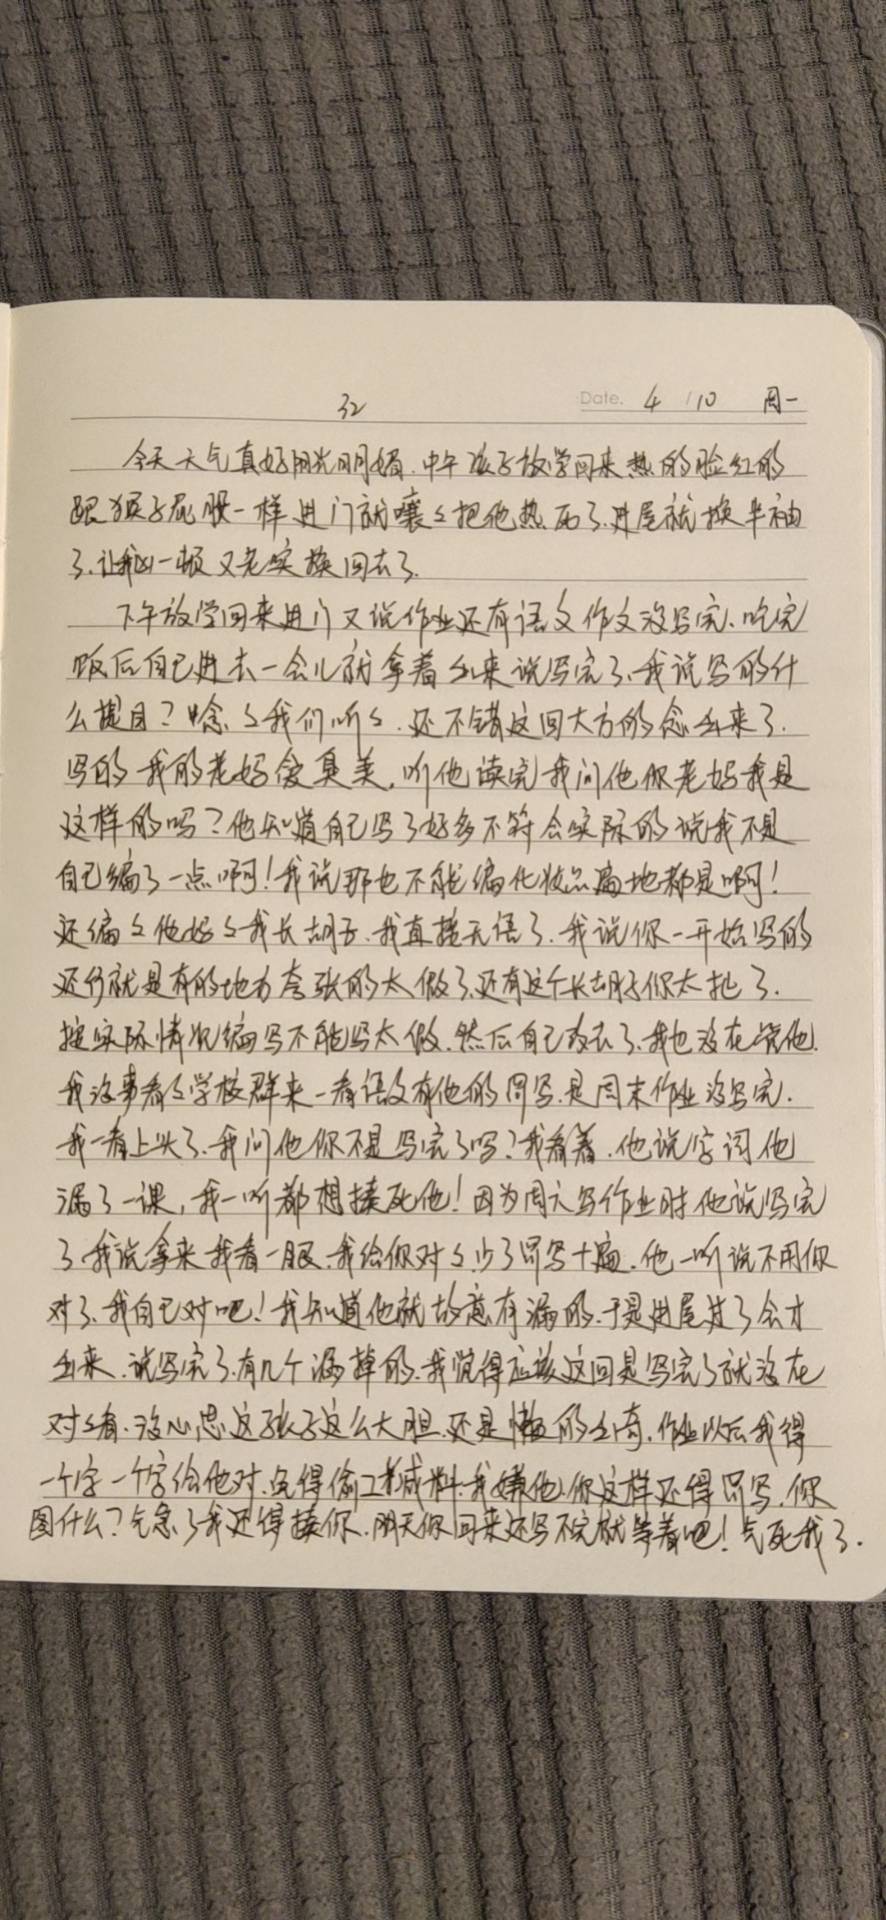 32 Date. 4 / 10 周一
今天天气真好阳光明媚.中午孩子放学回来热的脸红的
跟猴子屁股一样进门就嚷々把他热死了.进屋就换半袖
了.让我凶一顿又老实换回去了.
下午放学回来进门又说作业还有语文作文没写完.吃完
饭后自己进去一会儿就拿着出来说写完了.我说写的什
么提目?念々我们听々.还不错这回大方的念出来了.
写的我的老妈爱臭美.听他读完我问他你老妈我是
这样的吗?他知道自己写了好多不符合实际的说我不是
自己编了一点啊!我说那也不能编化妆品遍地都是啊!
还编々他妈々我长胡子.我直接无语了.我说你一开始写的
还行就是有的地方夸张的太假了.还有这个长胡子你太扯了.
按实际情况编写不能写太假.然后自己改去了.我也没在管他.
我没事看々学校群来一看语文有他的罚写.是周末作业没写完.
我一看上头了.我问他你不是写完了吗?我看着.他说字词他
漏了一课,我一听都想揍死他!因为周六写作业时他说写完
了.我说拿来我看一眼.我给你对々.少了罚写十遍.他一听说不用你
对了.我自己对吧!我知道他就故意有漏的.于是进屋过了会才
出来.说写完了.有几个漏掉的.我觉得应该这回是写完了就没在
对々看.没心思这孩子这么大胆.还是懒的出奇.作业以后我得
一个字一个字给他对.免得偷工减料.我嫌他.你这样还得罚写.你
图什么?气急了我还得揍你.明天你回来还写不完就等着吧!气死我了.